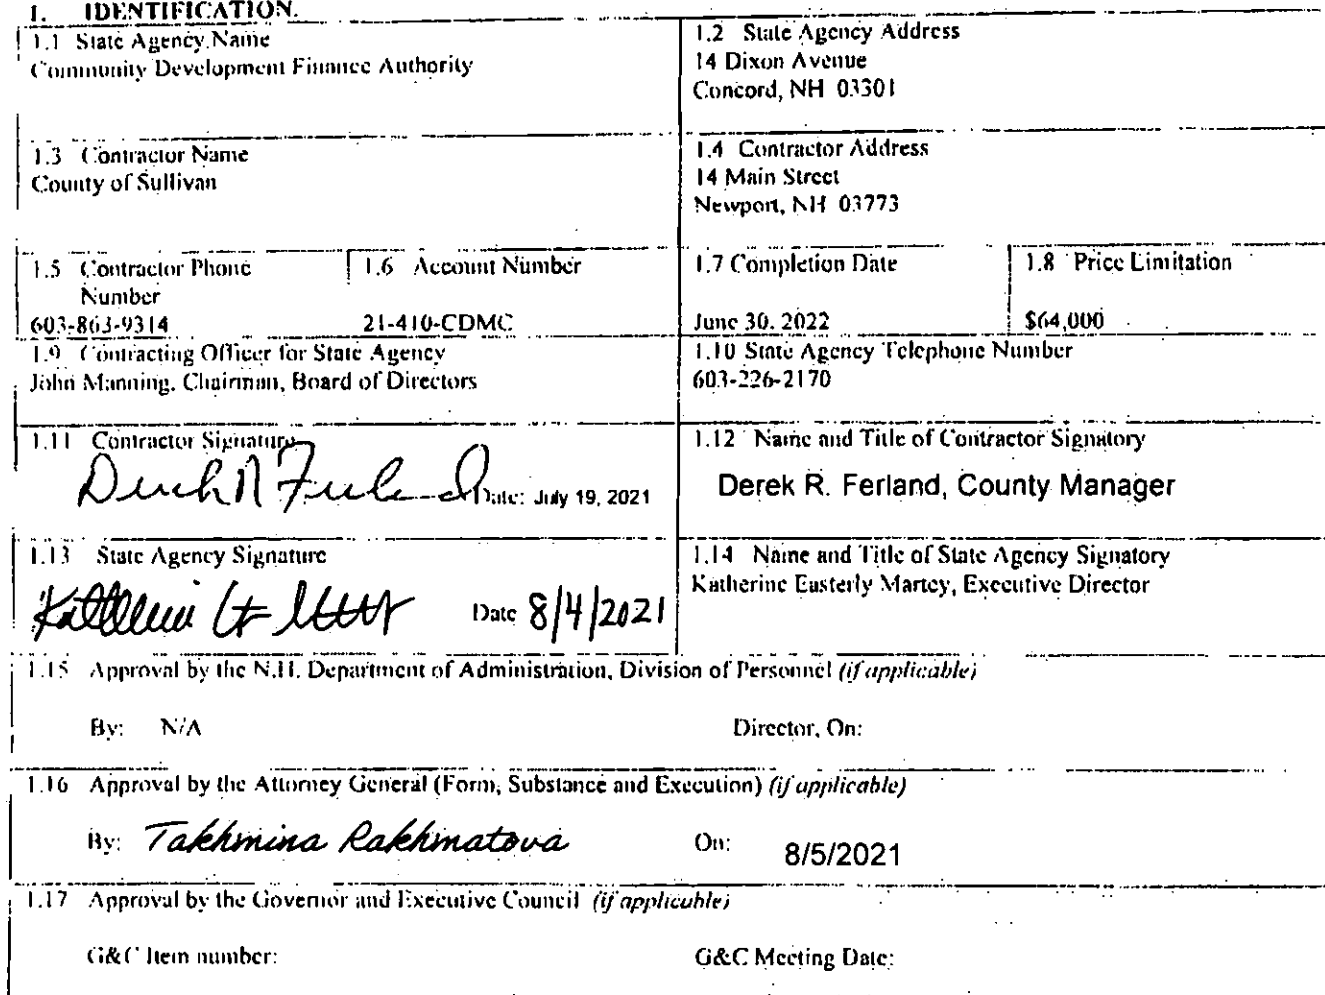 1. IDENTIFICATION.
1.1 State Agency Name
Community Development Finance Authority
1.2 State Agency Address
14 Dixon Avenue
Concord, NH 03301
1.3 Contractor Name
County of Sullivan
1.4 Contractor Address
14 Main Street
Newport, NH 03773
1.5 Contractor Phone
Number
603-863-9314
1.6 Account Number
21-410-CDMC
1.7 Completion Date
June 30, 2022
1.8 Price Limitation
$64,000
1.9 Contracting Officer for State Agency
John Manning, Chairman, Board of Directors
1.10 State Agency Telephone Number
603-226-2170
1.11 Contractor Signature
Date: July 19, 2021
1.12 Name and Title of Contractor Signatory
Derek R. Ferland, County Manager
1.13 State Agency Signature
Date 8/4/2021
1.14 Name and Title of State Agency Signatory
Katherine Easterly Martey, Executive Director
1.15 Approval by the N.H. Department of Administration, Division of Personnel (if applicable)
By: N/A Director, On:
1.16 Approval by the Attorney General (Form, Substance and Execution) (if applicable)
By: Takhmina Rakhmatova On: 8/5/2021
1.17 Approval by the Governor and Executive Council (if applicable)
G&C Item number: G&C Meeting Date: